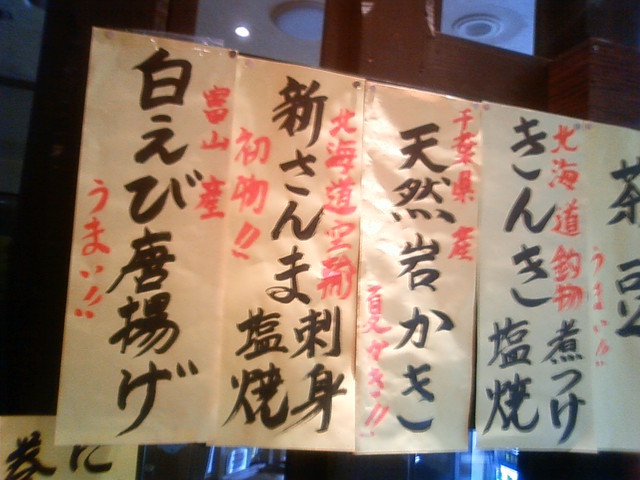 茶豆
北海道釣物
きんき 煮つけ
塩焼
うまい!!
千葉県産
天然岩かき
夏かき!!
北海道空輸
新さんま 刺身
塩焼
初物!!
富山産
白えび唐揚げ
うまい!!
に
巻